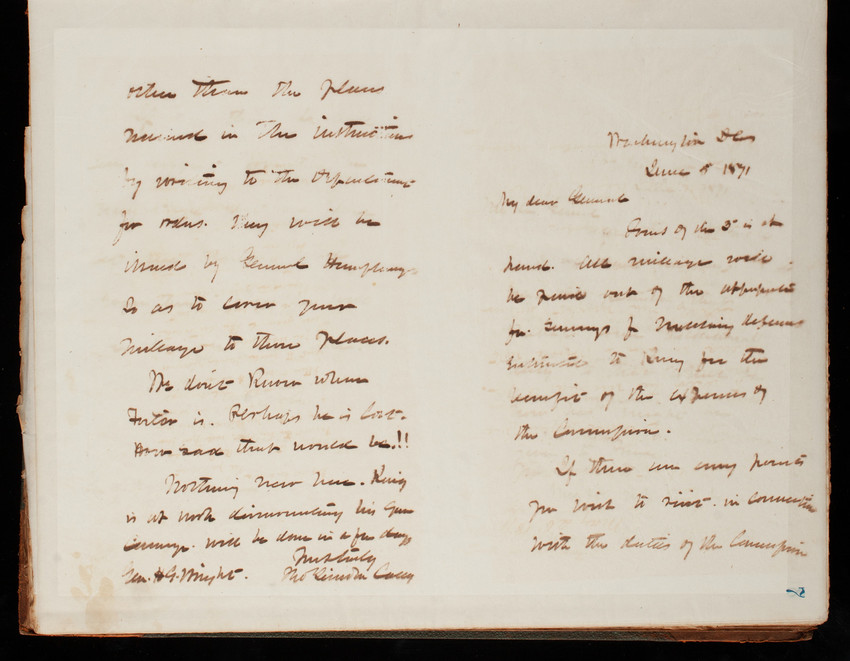 Washington DC
June 8 1871
My dear General
Yours of the 5 is at
hand. All mileage will
be paid out of the appropriation
for Surveys for Military defenses
to King for the
benefit of the expenses of
the Commission.
If there are any points
you wish to visit in connection
with the duties of the Commission
other than the places
named in the instructions
by writing to the Department
for orders. They will be
issued by General Humphreys
so as to cover your
mileage to those places.
We don't know where
Foster is. Perhaps he is lost.
How sad that would be.!!
Nothing new here. King
is at work dismounting his gun
carriage. Will be done in a few days
Truly
Gen. H G. Wright. Thos Lincoln Casey